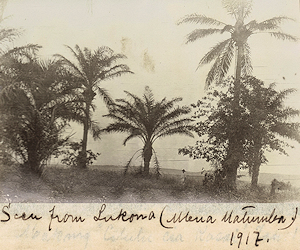 Seen from Lukona (Mena Matumba)
1917.